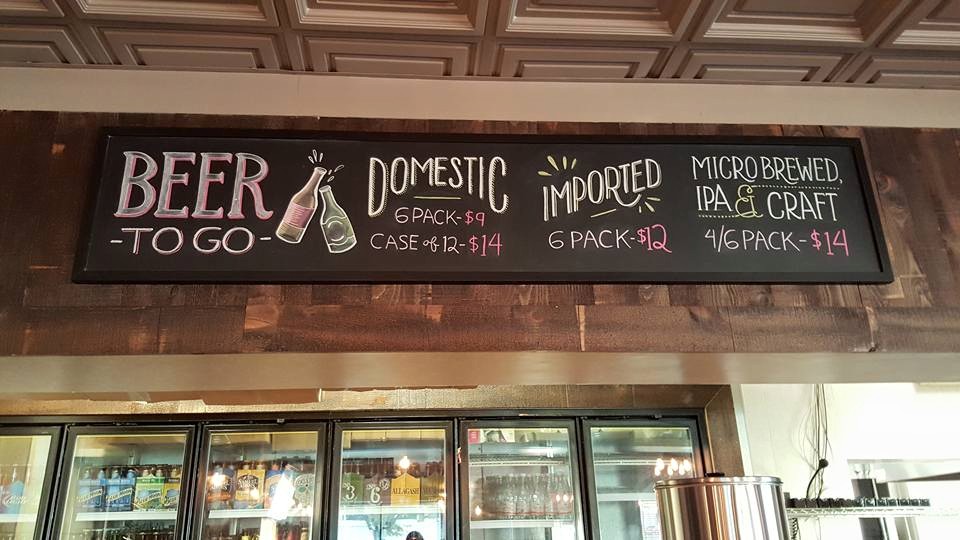 BEER
-TO GO-
DOMESTIC
6 PACK-$9
CASE of 12-$14
IMPORTED
6 PACK-$12
MICROBREWED,
IPA & CRAFT
4/6 PACK-$14
3
6
ALLAGASH